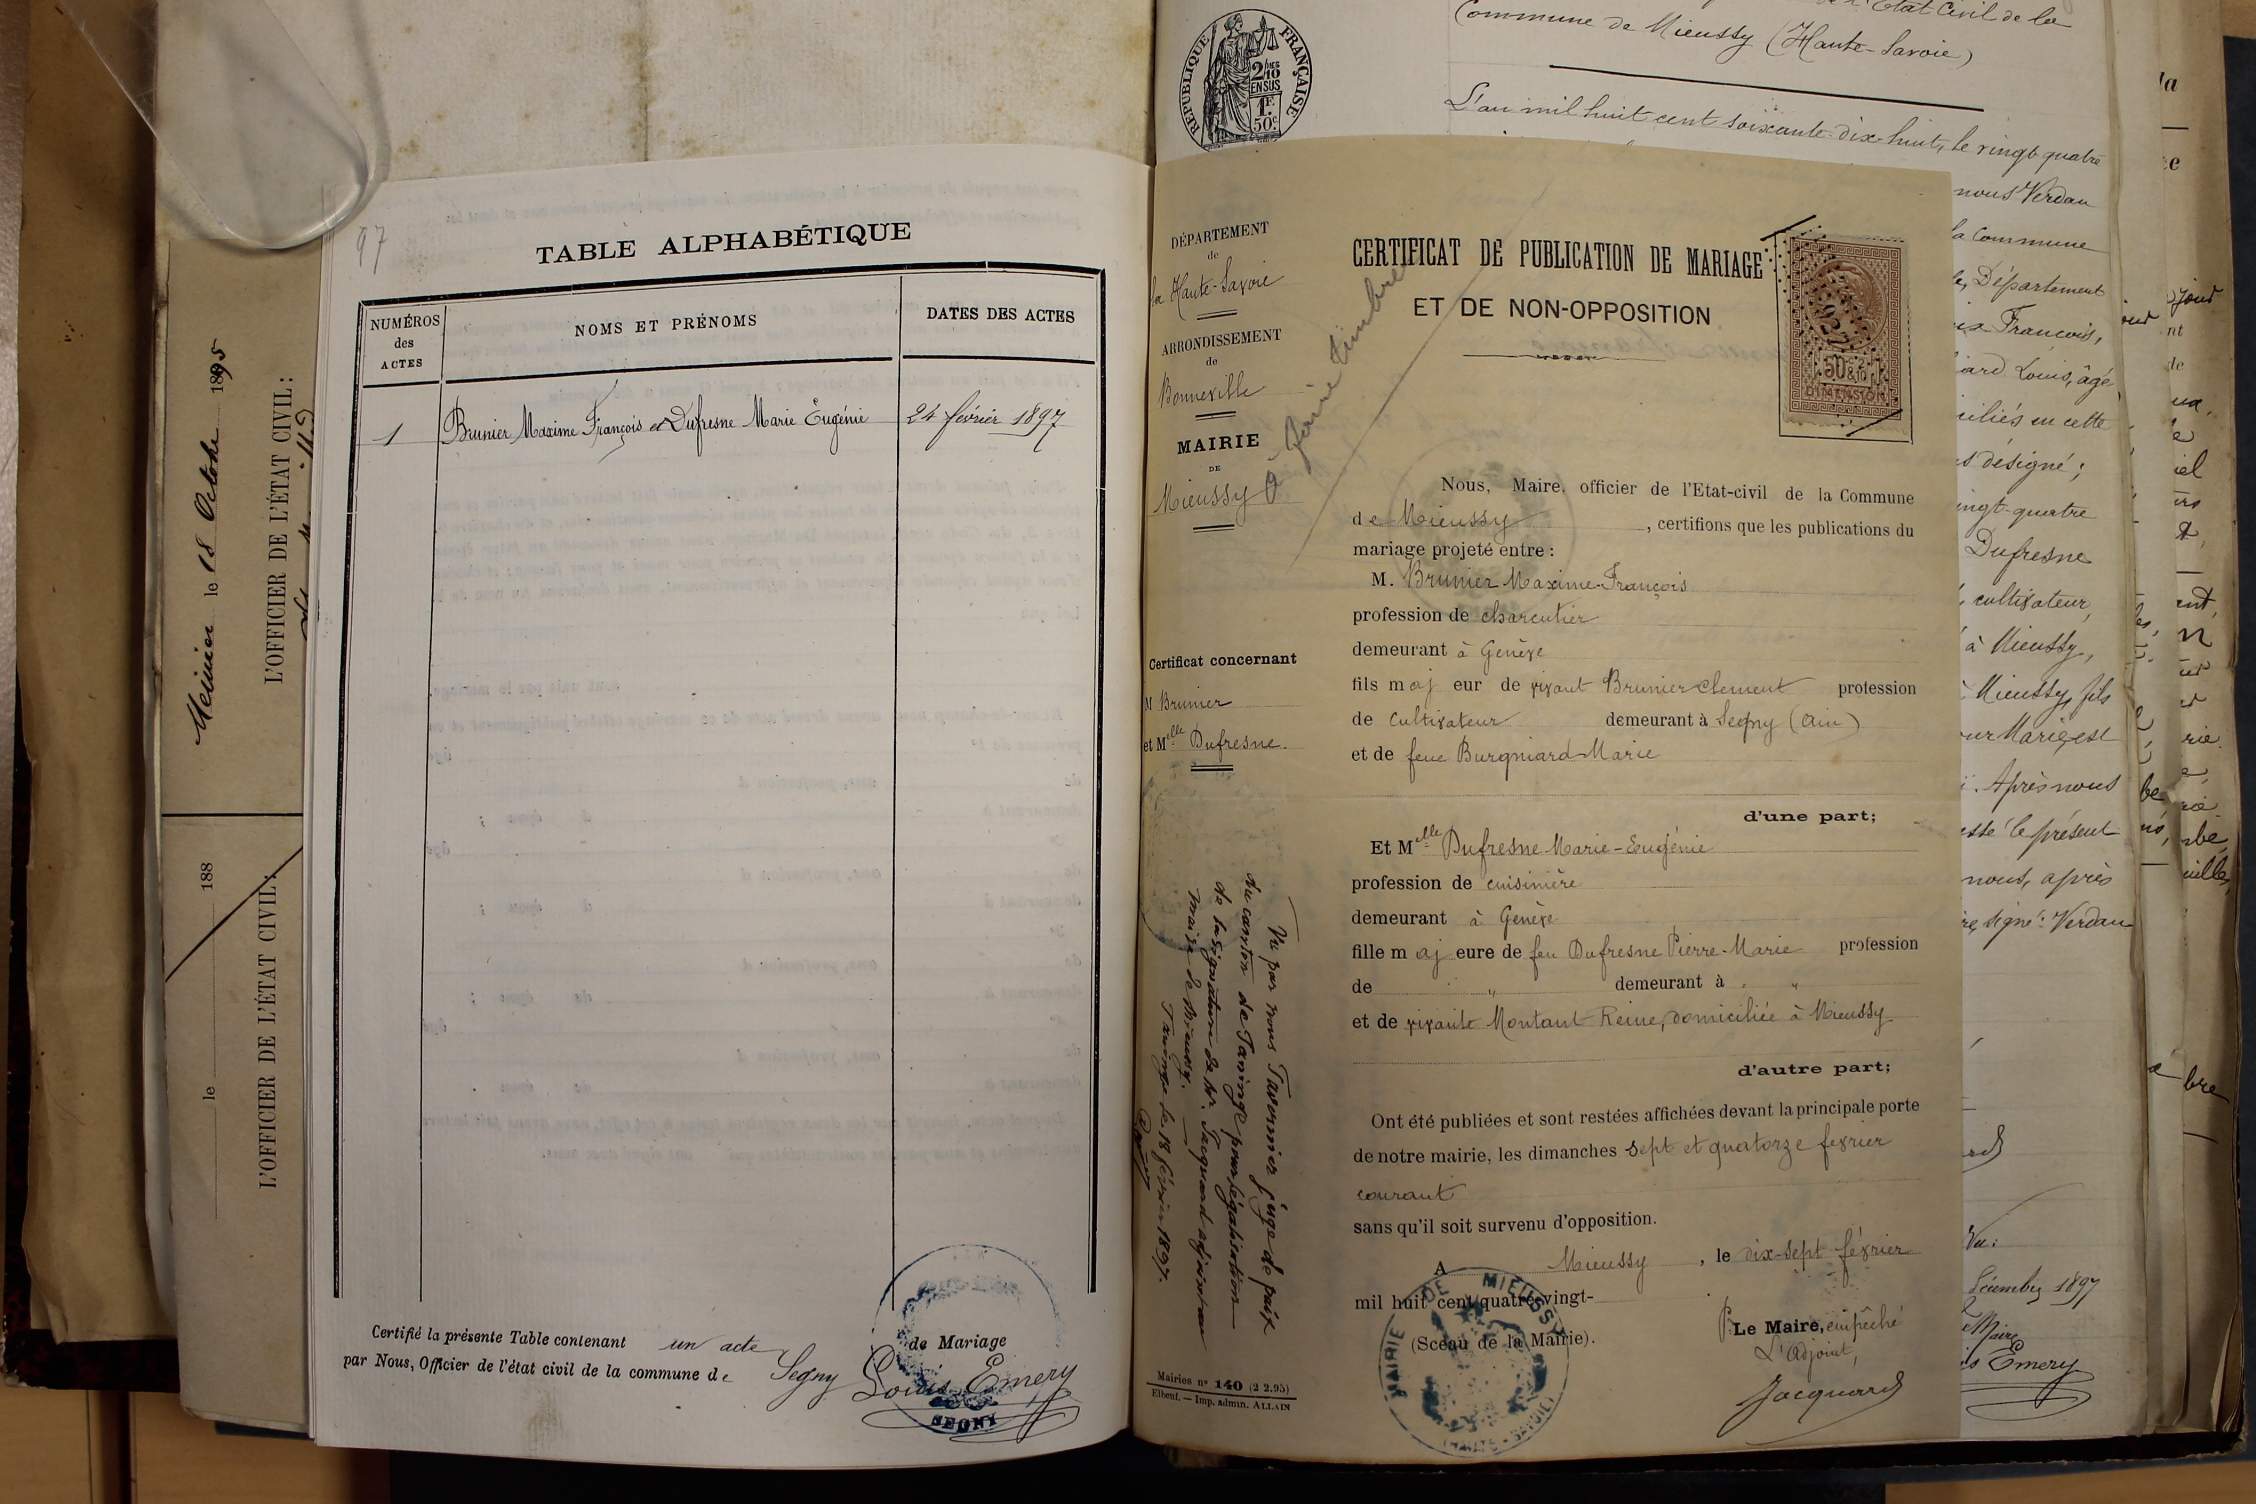 Meinier le 18 Octobre 1895
L'OFFICIER DE L'ÉTAT CIVIL:
le 188
L'OFFICIER DE L'ÉTAT CIVIL:
97
TABLE ALPHABÉTIQUE
NUMÉROS
des
ACTES
NOMS ET PRÉNOMS
DATES DES ACTES
1 Brunier Maxime François et Dufresne Marie Eugénie 24 février 1897
Certifié la présente Table contenant un acte de Mariage
par Nous, Officier de l'état civil de la commune de Segny Louis Emery
SEGNY
RÉPUBLIQUE FRANÇAISE
2/10
EN SUS
1F.
50c
l'Etat Civil de la
Commune de Mieussy (Haute-Savoie)
L'an mil huit cent soixante-dix-huit, le vingt quatre
DÉPARTEMENT
de
la Haute-Savoie
ARRONDISSEMENT
de
Bonneville
MAIRIE
DE
Mieussy
à faire timbrer
Certificat concernant
M Brunier
et Melle Dufresne.
Vu par nous Tavernier juge de paix
du canton de Taninge pour légalisation
de la signature de Mr. Jacquard adjoint au
maire de Mieussy.
Taninge le 18 février 1897.
Mairies no 140 (2 2.95)
Elbeuf. — Imp. admin. ALLAIN
CERTIFICAT DE PUBLICATION DE MARIAGE
ET DE NON-OPPOSITION
927
DIMENSION
Nous, Maire, officier de l'Etat-civil de la Commune
de Mieussy, certifions que les publications du
mariage projeté entre:
M. Brunier Maxime-François
profession de charcutier
demeurant à Genève
fils majeur de vivant Brunier Clement profession
de Cultivateur demeurant à Segny (Ain)
et de feue Burgniard Marie
d'une part;
Et Melle Dufresne Marie-Eugénie
profession de cuisinière
demeurant à Genève
fille majeure de feu Dufresne Pierre-Marie profession
de " demeurant à "
et de vivante Montant Reine, domiciliée à Mieussy
d'autre part;
Ont été publiées et sont restées affichées devant la principale porte
de notre mairie, les dimanches sept et quatorze février
courant
sans qu'il soit survenu d'opposition.
A Mieussy, le dix-sept février
mil huit cent quatre-vingt-
(Sceau de la Mairie).
P. Le Maire, empêché
L'Adjoint,
Jacquard
MAIRIE DE MIEUSSY
(HAUTE-SAVOIE)
nous Verdan
la Commune
Département
François,
Louis, âgé
en cette
désigné;
vingt-quatre
Dufresne
cultivateur,
à Mieussy,
Mieussy, fils
Marie, est
Après nous
le présent
nous, après
signé: Verdan
Vu:
Décembre 1897
Maire
Emery